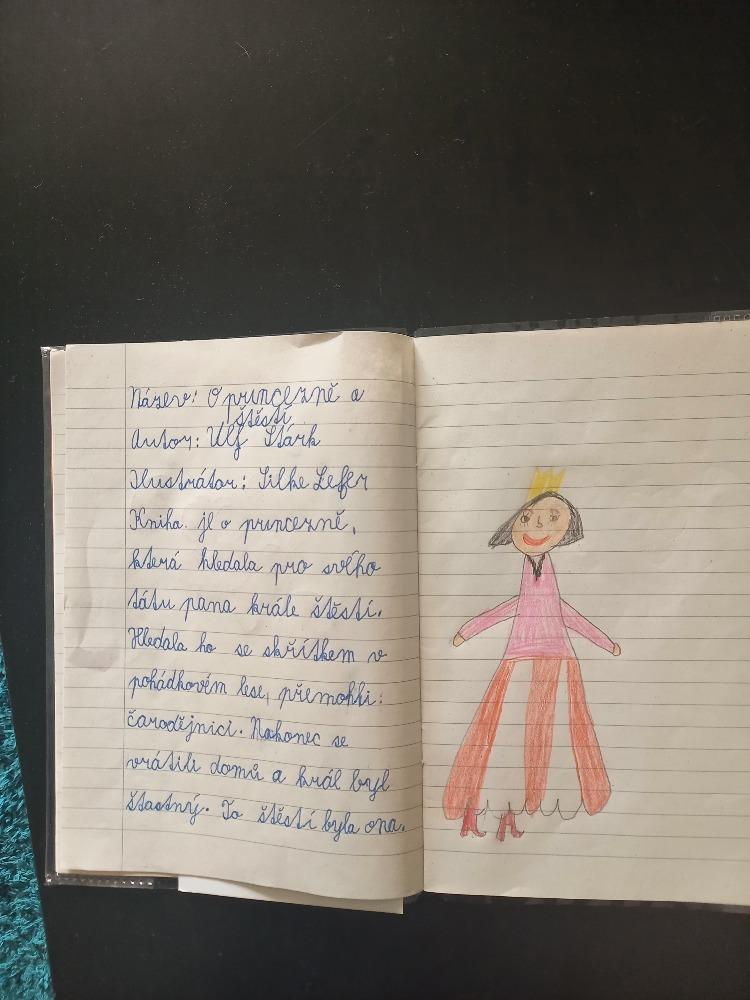 Název: O princezně a
štěstí
Autor: Ulf Stárk
Ilustrátor: Silke Lefer
Kniha je o princezně,
která hledala pro svého
tátu pana krále štěstí.
Hledala ho se skřítkem v
pohádkovém lese, přemohli:
čarodějnici. Nakonec se
vrátili domů a král byl
štastný. To štěstí byla ona.